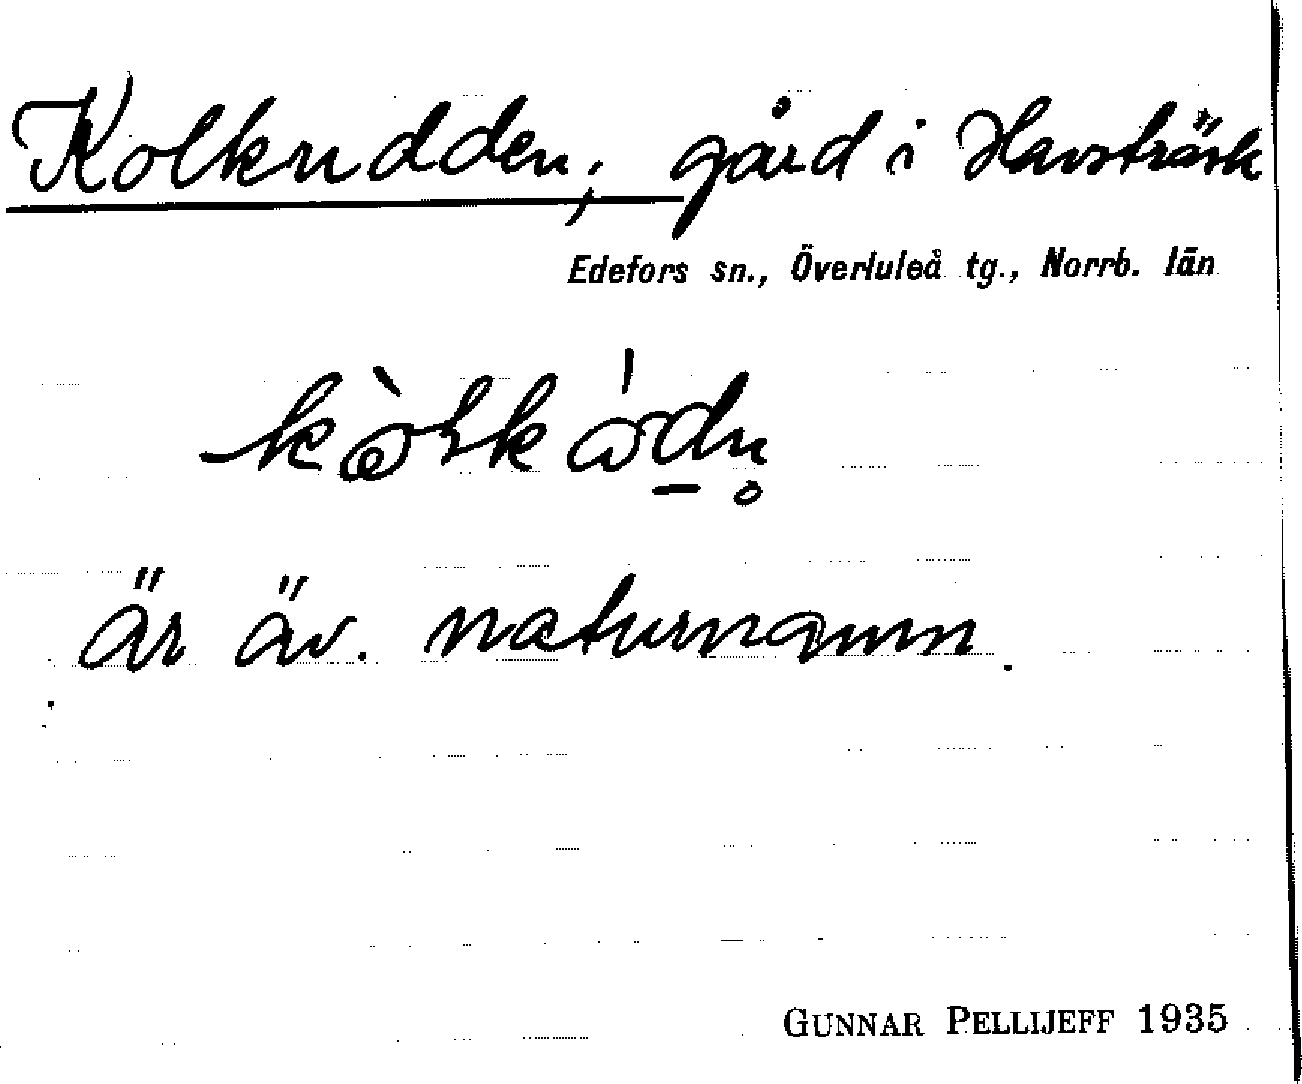 Kolkudden, gård i Havsträsk
Edefors sn., Överluleå tg., Norrb. län
är äv. naturnamn.
GUNNAR PELLIJEFF 1935